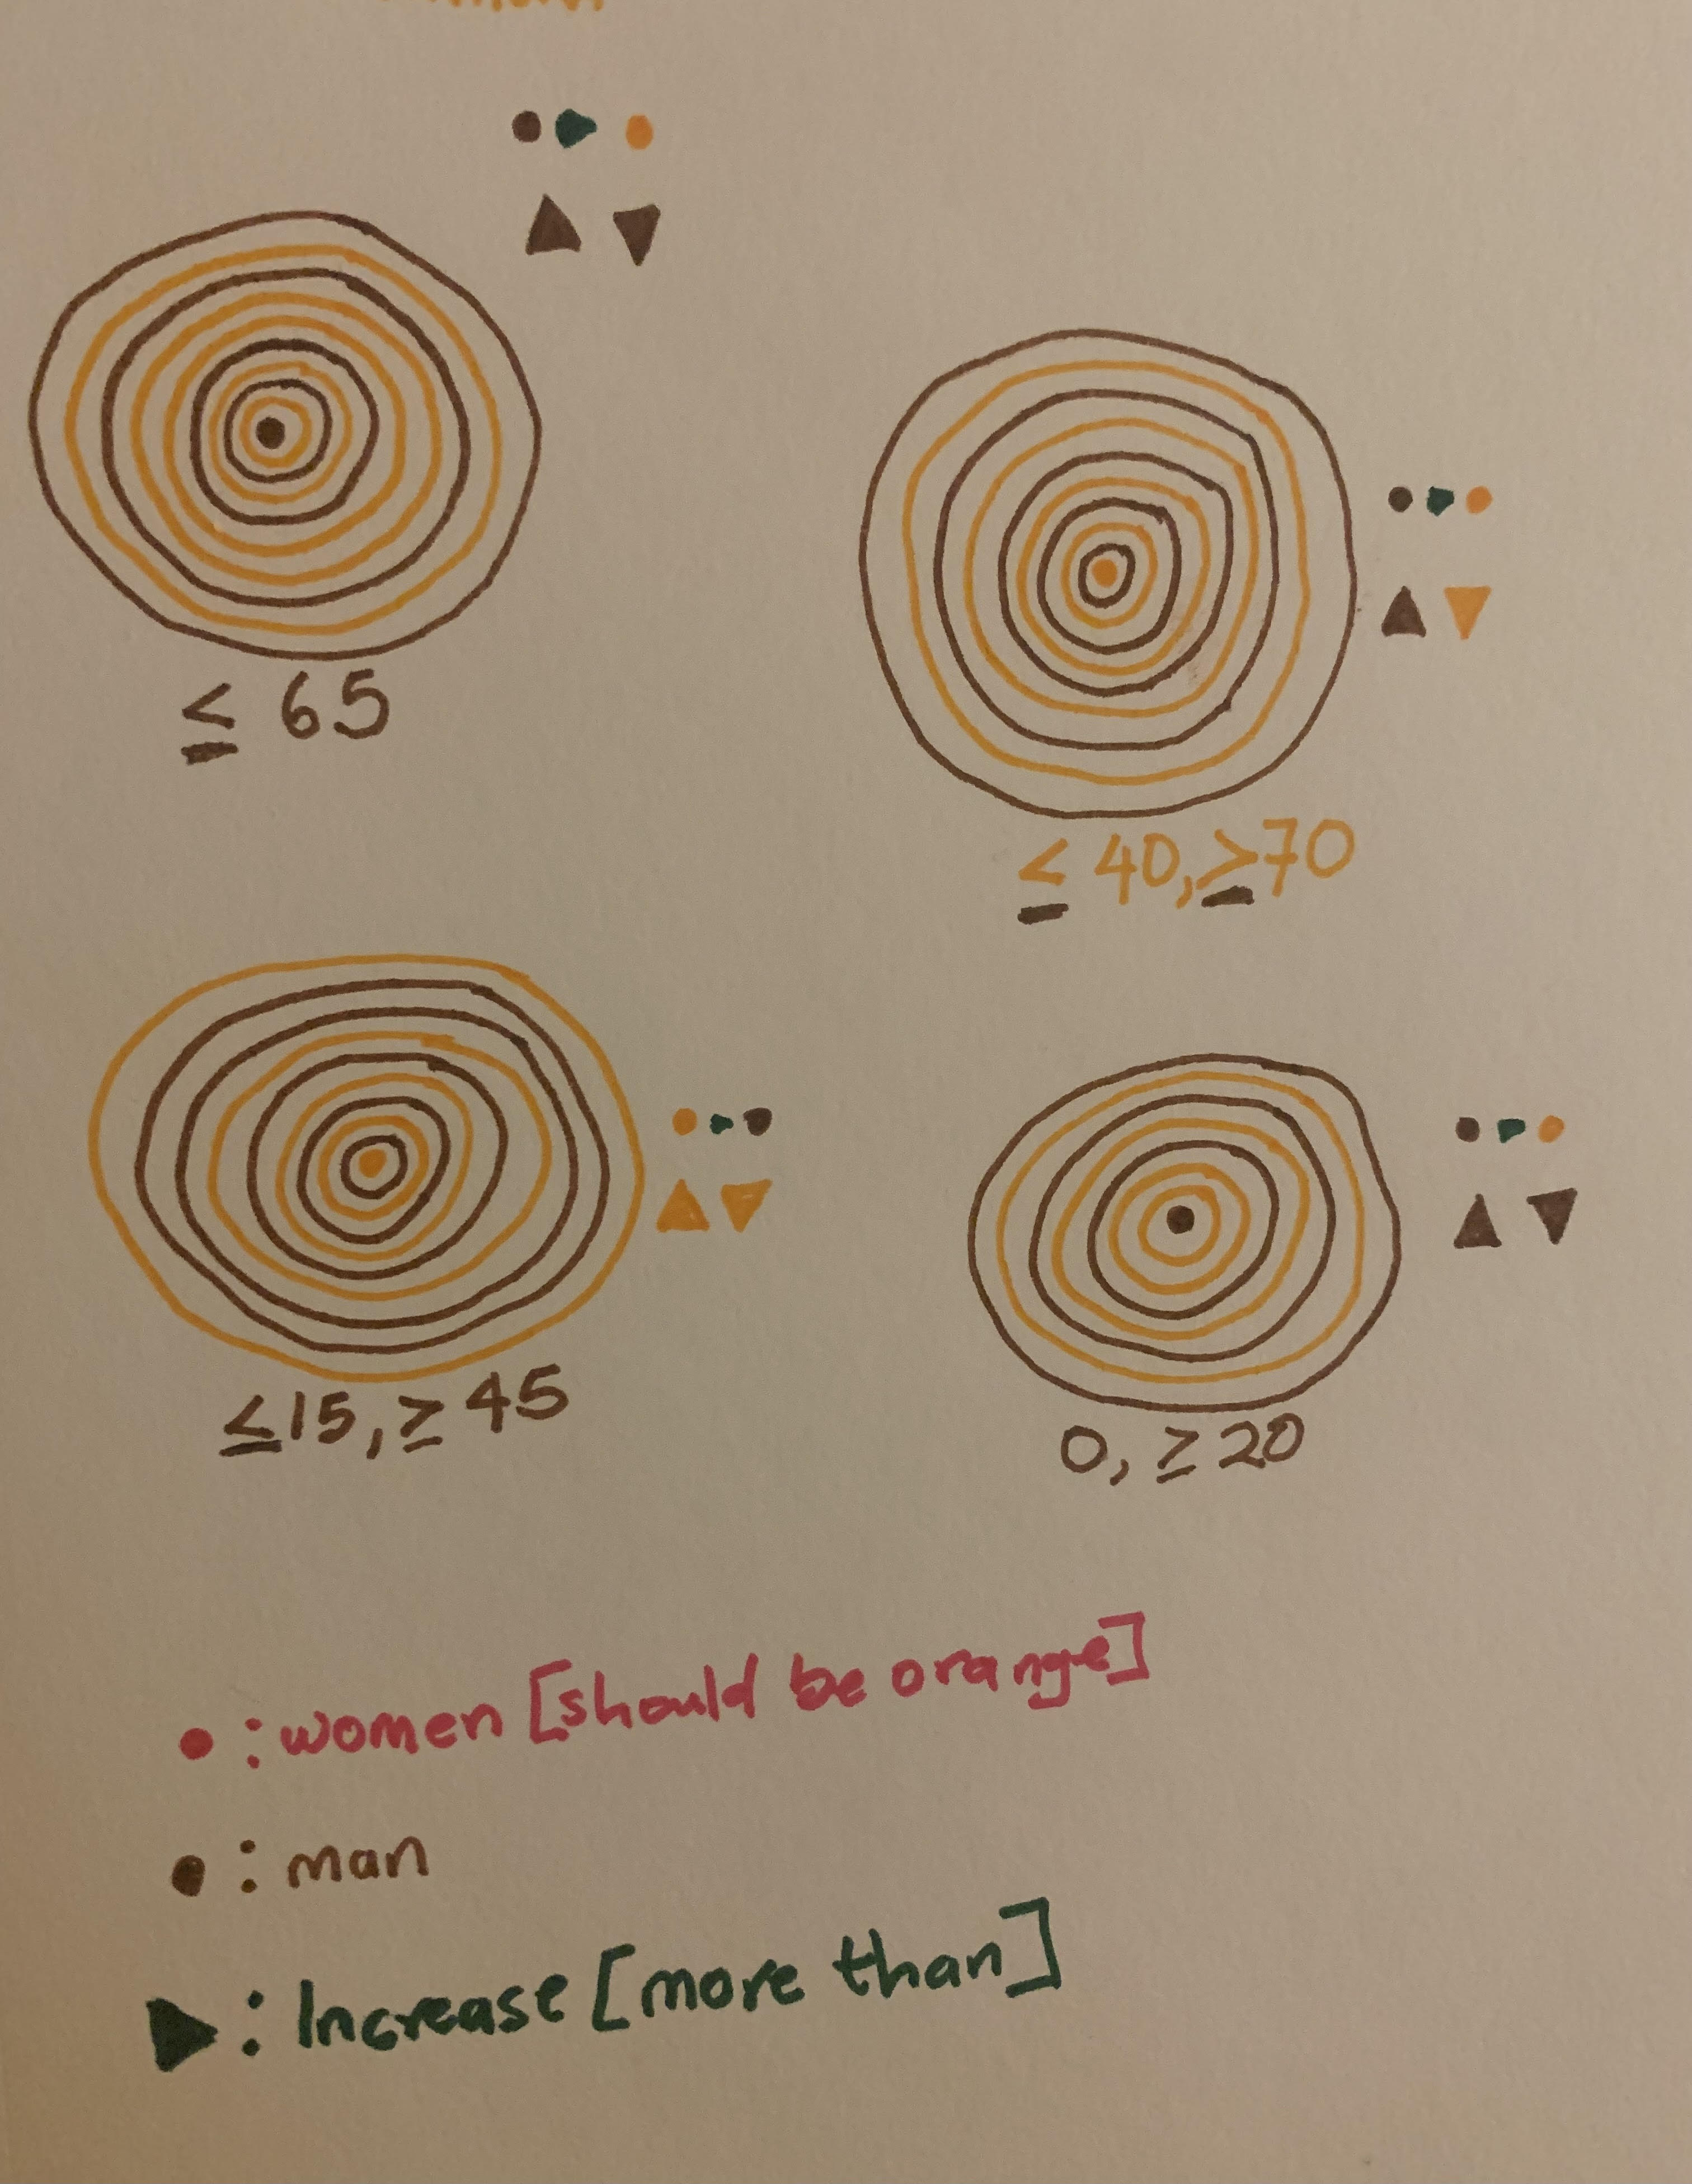 ≤ 65
≤ 40, ≥70
≤15, ≥ 45
0, ≥ 20
: women [should be orange]
: man
: Increase [more than]